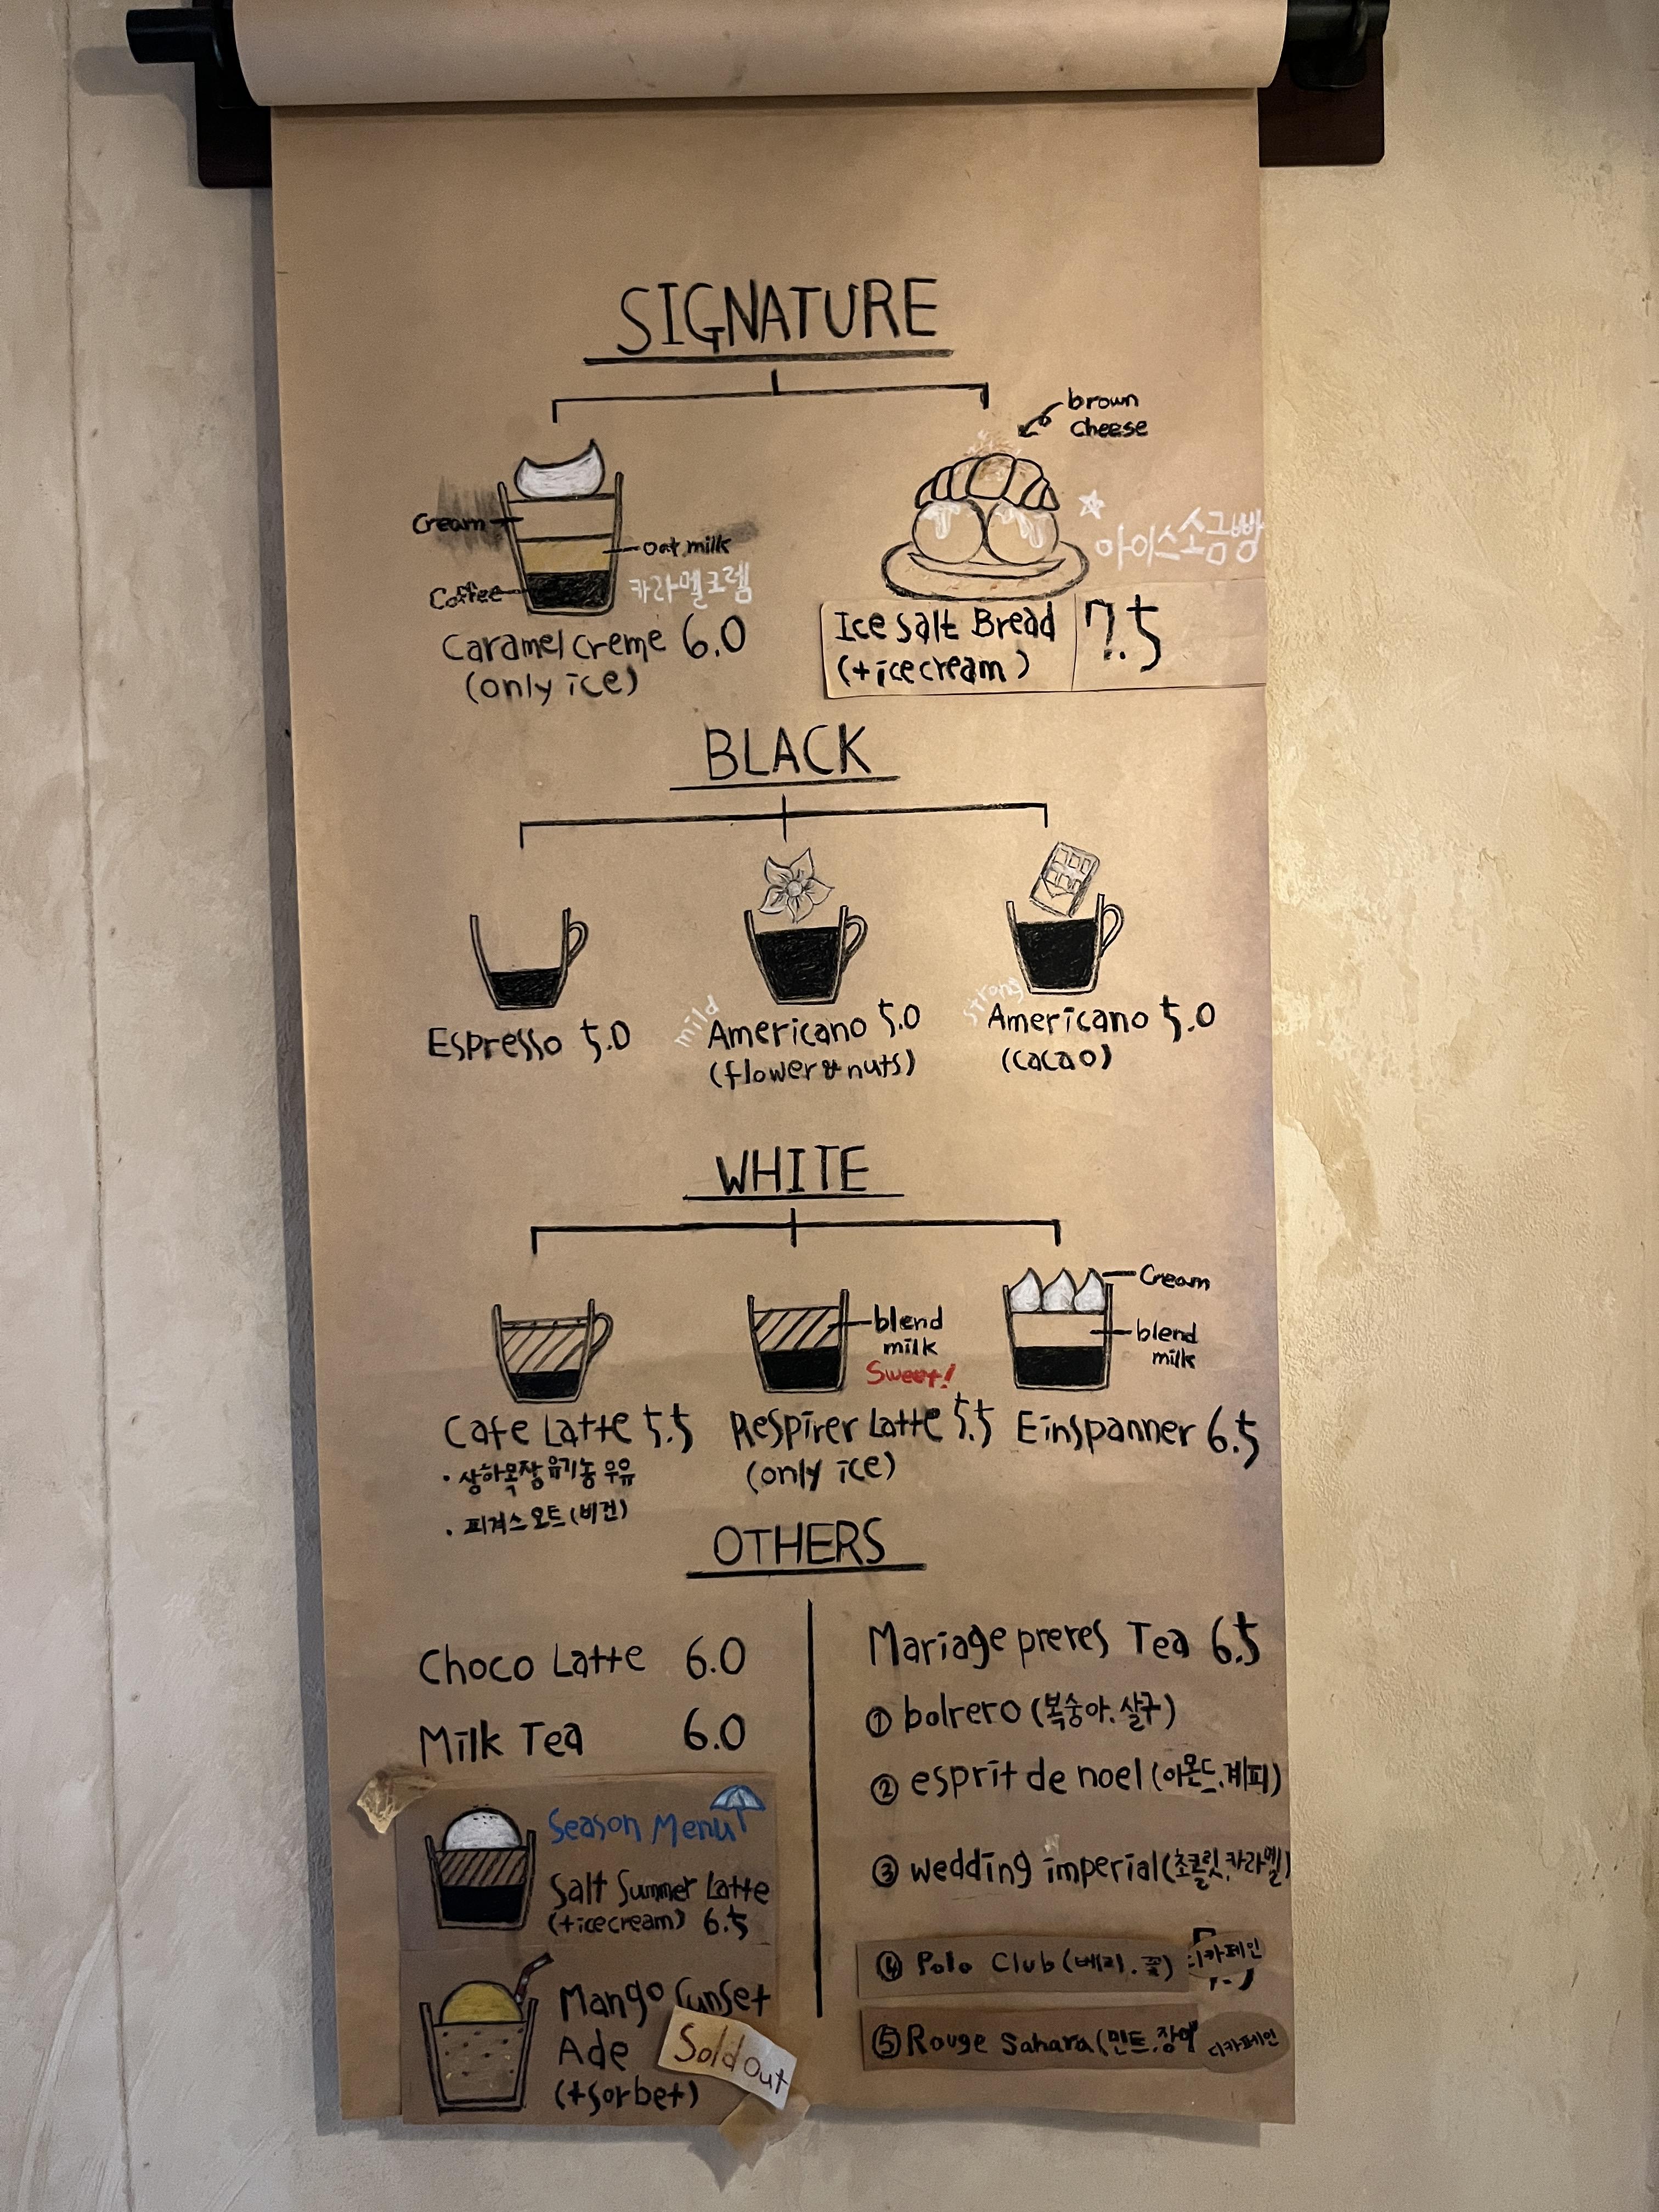 SIGNATURE
brown
cheese
Cream
oat milk
Coffee
카라멜크렘
Caramel creme 6.0
(only ice)
아이스소금빵
Ice Salt Bread 7.5
(+icecream)
BLACK
Espresso 5.0
mild
Americano 5.0
(flower & nuts)
strong
Americano 5.0
(cacao)
WHITE
Cafe Latte 5.5
• 상하목장 유기농 우유
• 피겨스 오트(비건)
blend
milk
Sweet!
Respirer Latte 5.5
(only ice)
Cream
blend
milk
Einspanner 6.5
OTHERS
Choco Latte 6.0
Milk Tea 6.0
Season Menu
Salt Summer Latte
(+icecream) 6.5
Mango Sunset
Ade
(+sorbet)
Sold out
Mariage preres Tea 6.5
① bolrero (복숭아.살구)
② esprit de noel (아몬드.계피)
③ wedding imperial (초콜릿.카라멜)
④ Polo Club (베리.꽃) 디카페인
⑤ Rouge Sahara (민트.장미 디카페인